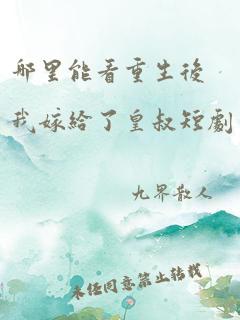 哪里能看重生後
我嫁給了皇叔短劇
九界散人
未经同意禁止转载